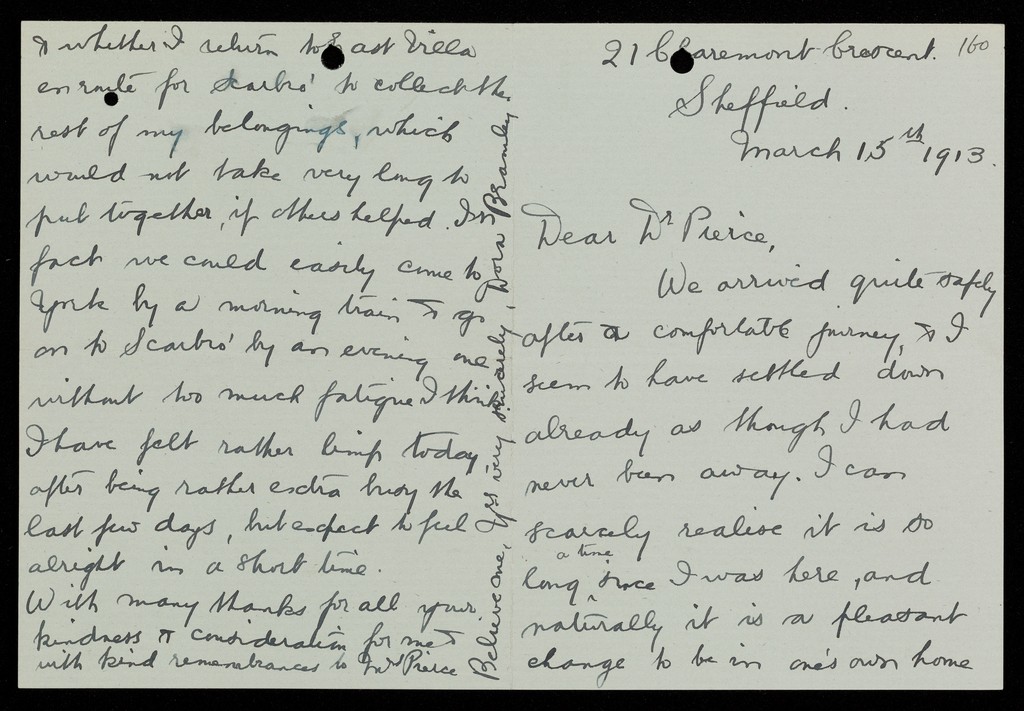 160
21 Claremont Crescent.
Sheffield.
March 15th 1913.
Dear Dr Pierce,
We arrived quite safely
after a comfortable journey, & I
seem to have settled down
already as though I had
never been away. I can
scarcely realise it is so
long a time since I was here, and
naturally it is a pleasant
change to be in one's own home
& whether I return to East Villa
en route for Scarbro' to collect the
rest of my belongings, which
would not take very long to
put together, if others helped. In
fact we could easily come to
York by a morning train & go
on to Scarbro' by an evening one
without too much fatigue I think.
I have felt rather limp today
after being rather extra busy the
last few days, but expect to feel
alright in a short time.
With many thanks for all your
kindness & consideration for me &
with kind remembrances to Mrs Pierce
Believe me, Yrs very sincerely, Dora Bramley